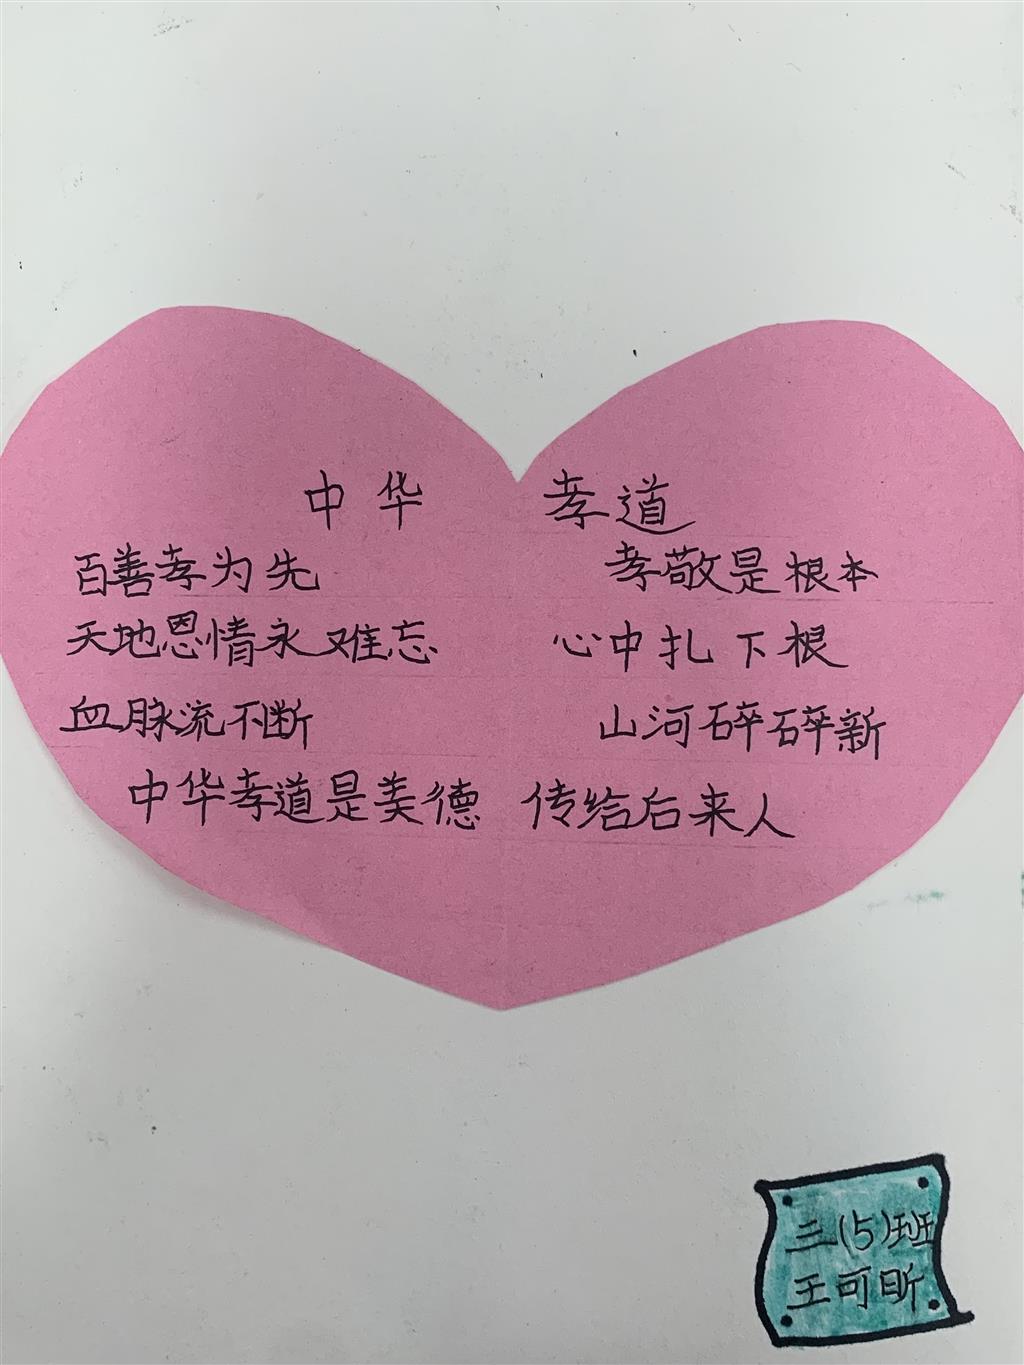 中华 孝道
百善孝为先 孝敬是根本
天地恩情永难忘 心中扎下根
血脉流不断 山河碎碎新
中华孝道是美德 传给后来人
三(5)班
王可昕